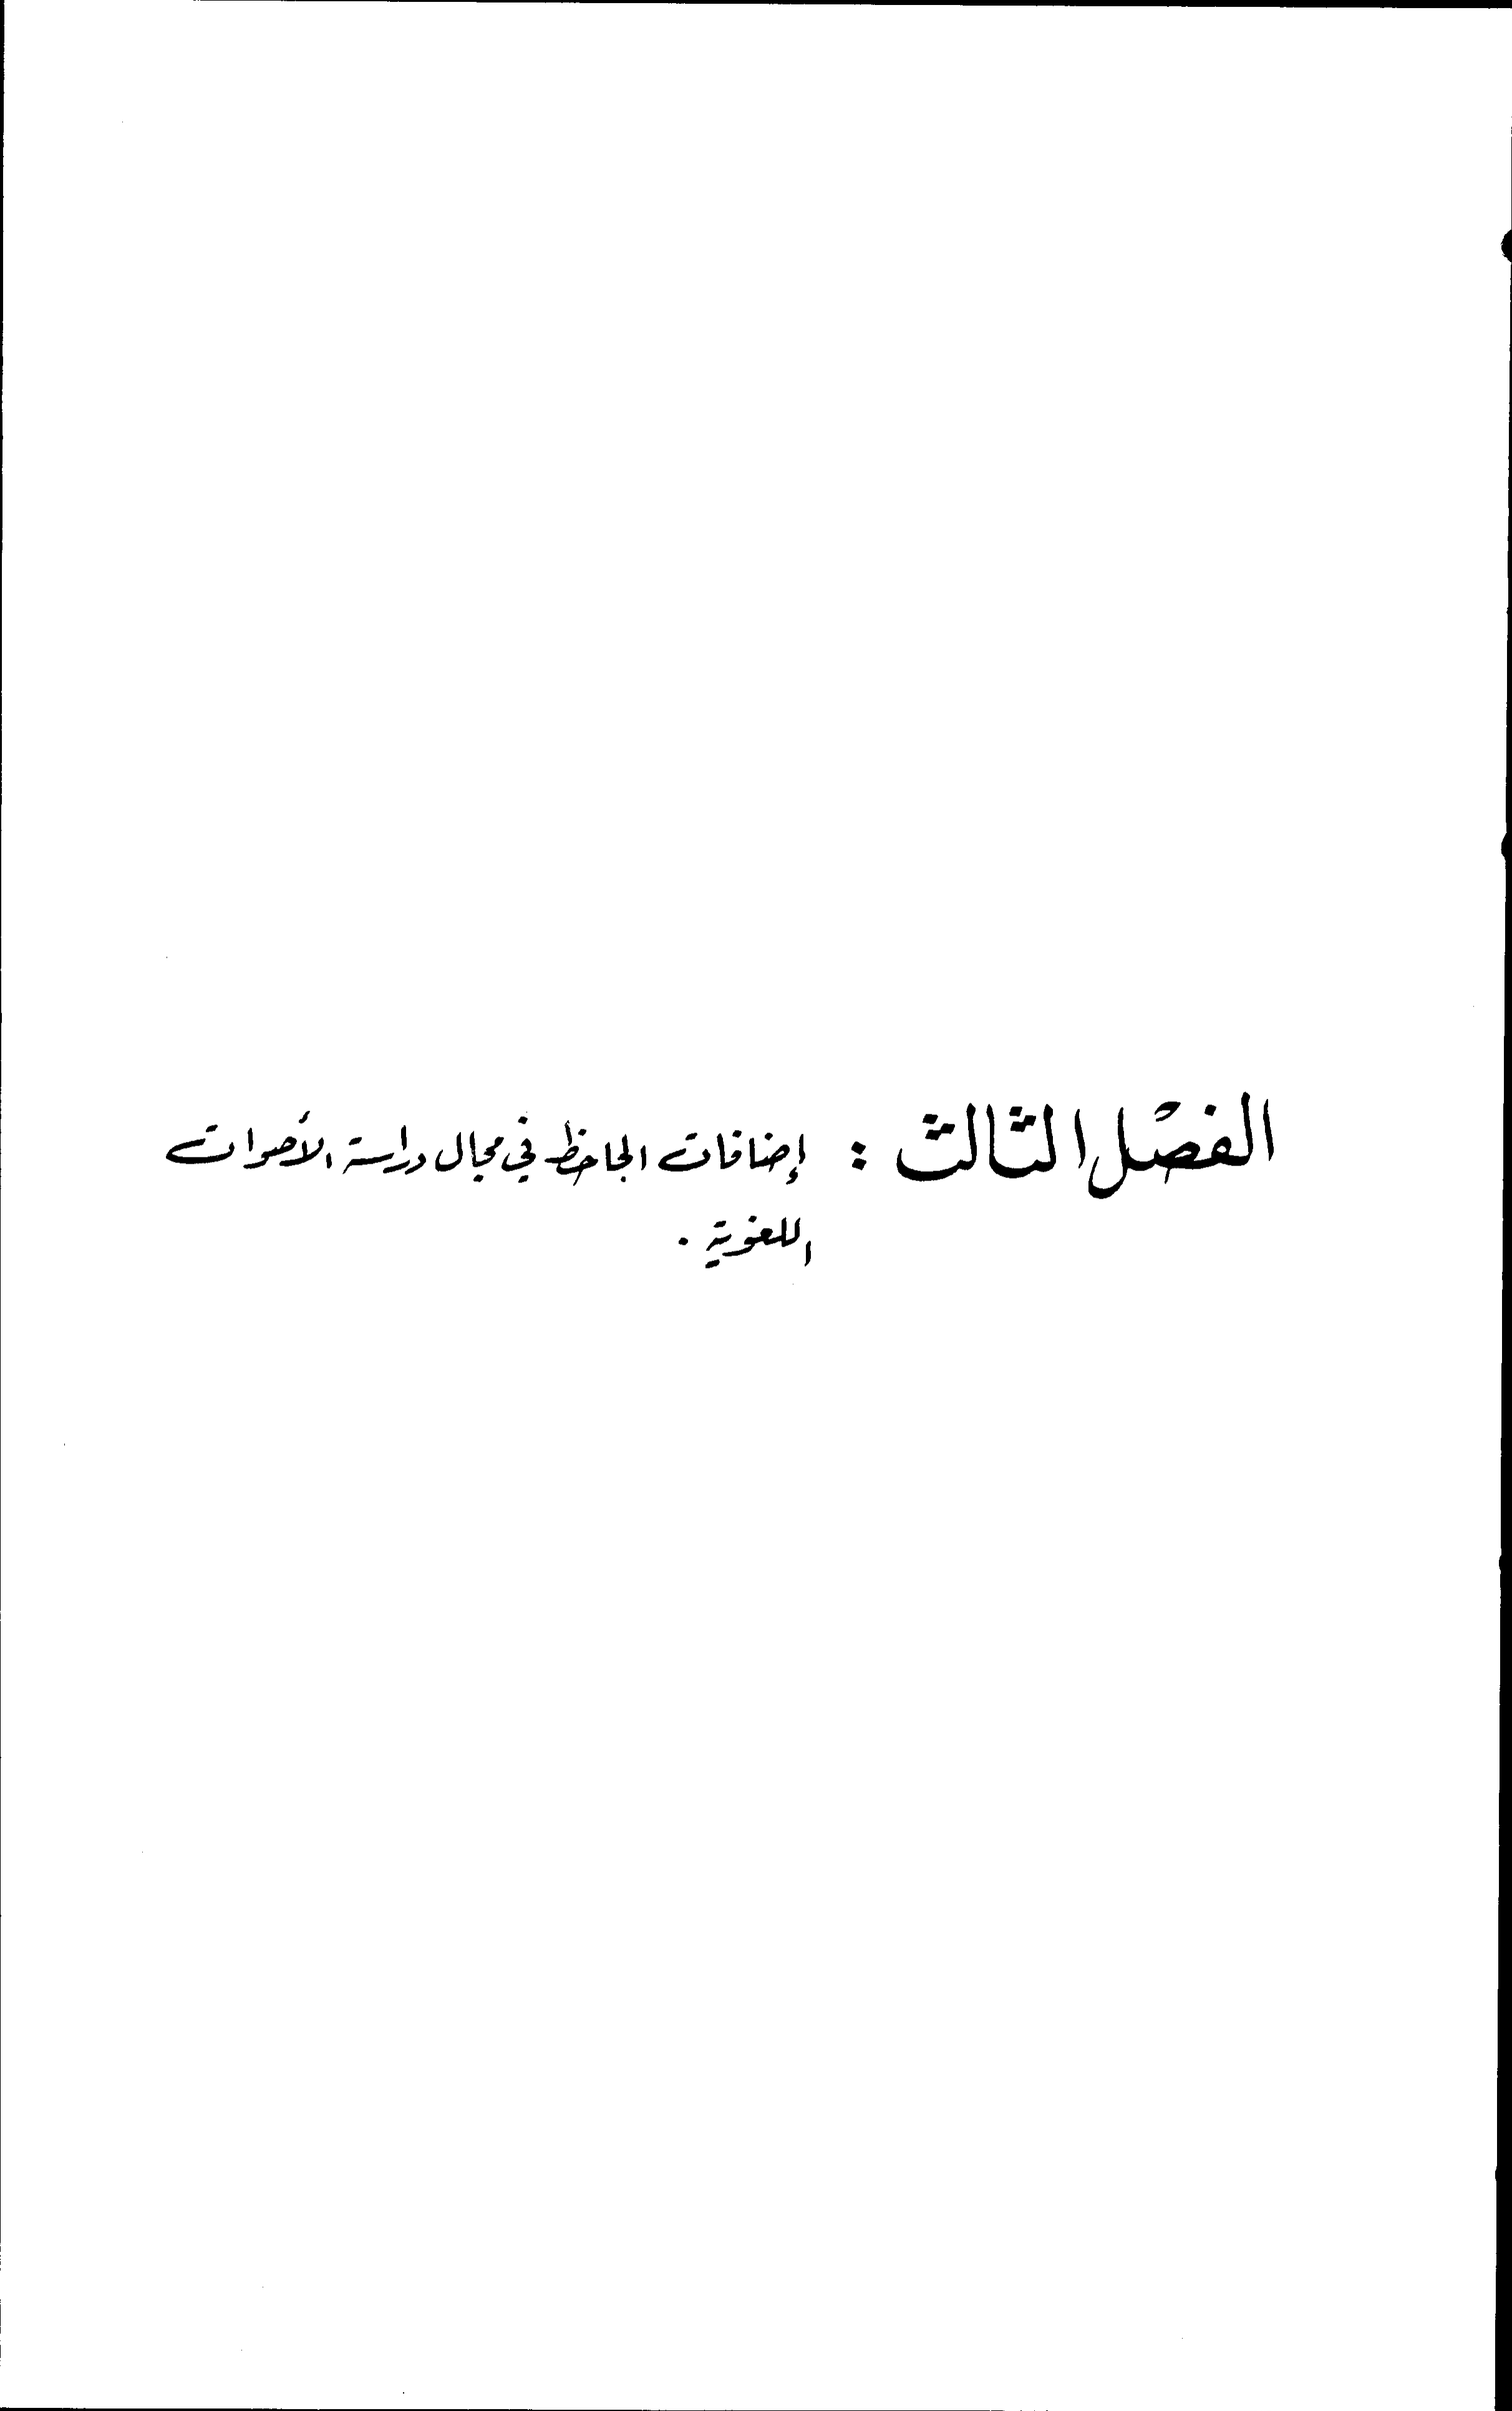 الفصل الثالث : إضافات الجاحظ في مجال دراسة الأصوات
اللغوية .